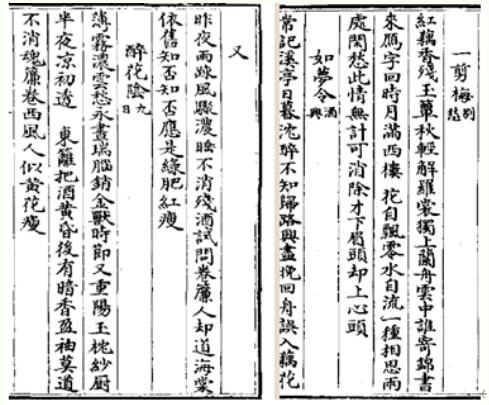 一剪梅 别愁
紅藕香殘玉簟秋輕解羅裳獨上蘭舟雲中誰寄錦書
來鴈字回時月滿西樓 花自飄零水自流一種相思兩
處閑愁此情無計可消除才下眉頭却上心頭
如夢令 酒興
常記溪亭日暮沈醉不知歸路興盡挽回舟誤入藕花
又
昨夜雨踈風驟濃睡不消殘酒試問卷簾人却道海棠
依舊知否知否應是綠肥紅瘦
醉花陰 九日
薄霧濃雲愁永晝瑞腦銷金獸時節又重陽玉枕紗厨
半夜凉初透 東籬把酒黃昏後有暗香盈袖莫道
不消魂簾卷西風人似黃花瘦